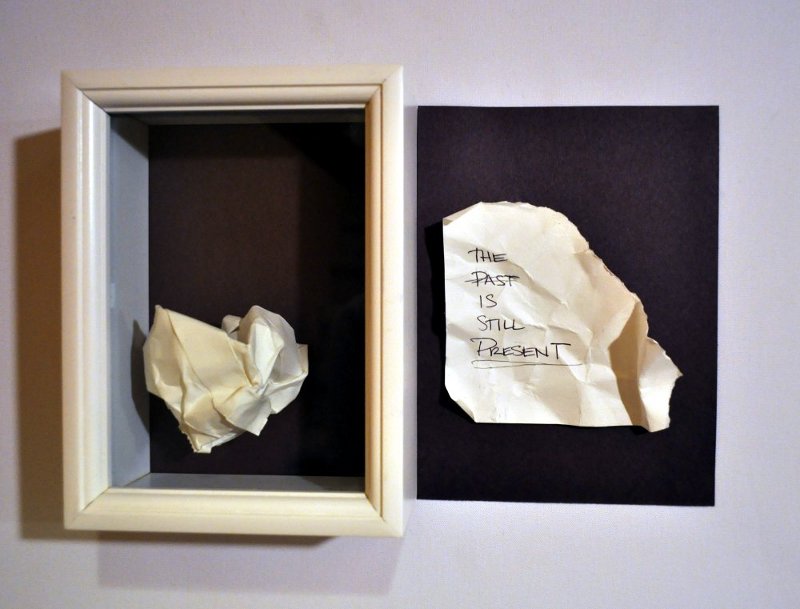 THE
PAST
IS
STILL
PRESENT